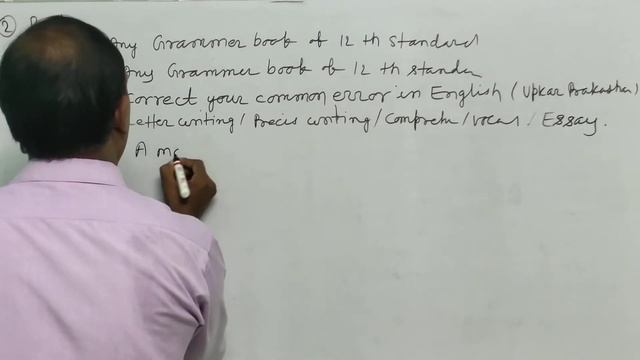 ②
Any Grammer book of 12 th standard
Any Grammer book of 12 th standa
correct your common error in English (Upkar Prakashan)
Letter writing / Precis writing / Compreh / Vocab / Essay.
A mo